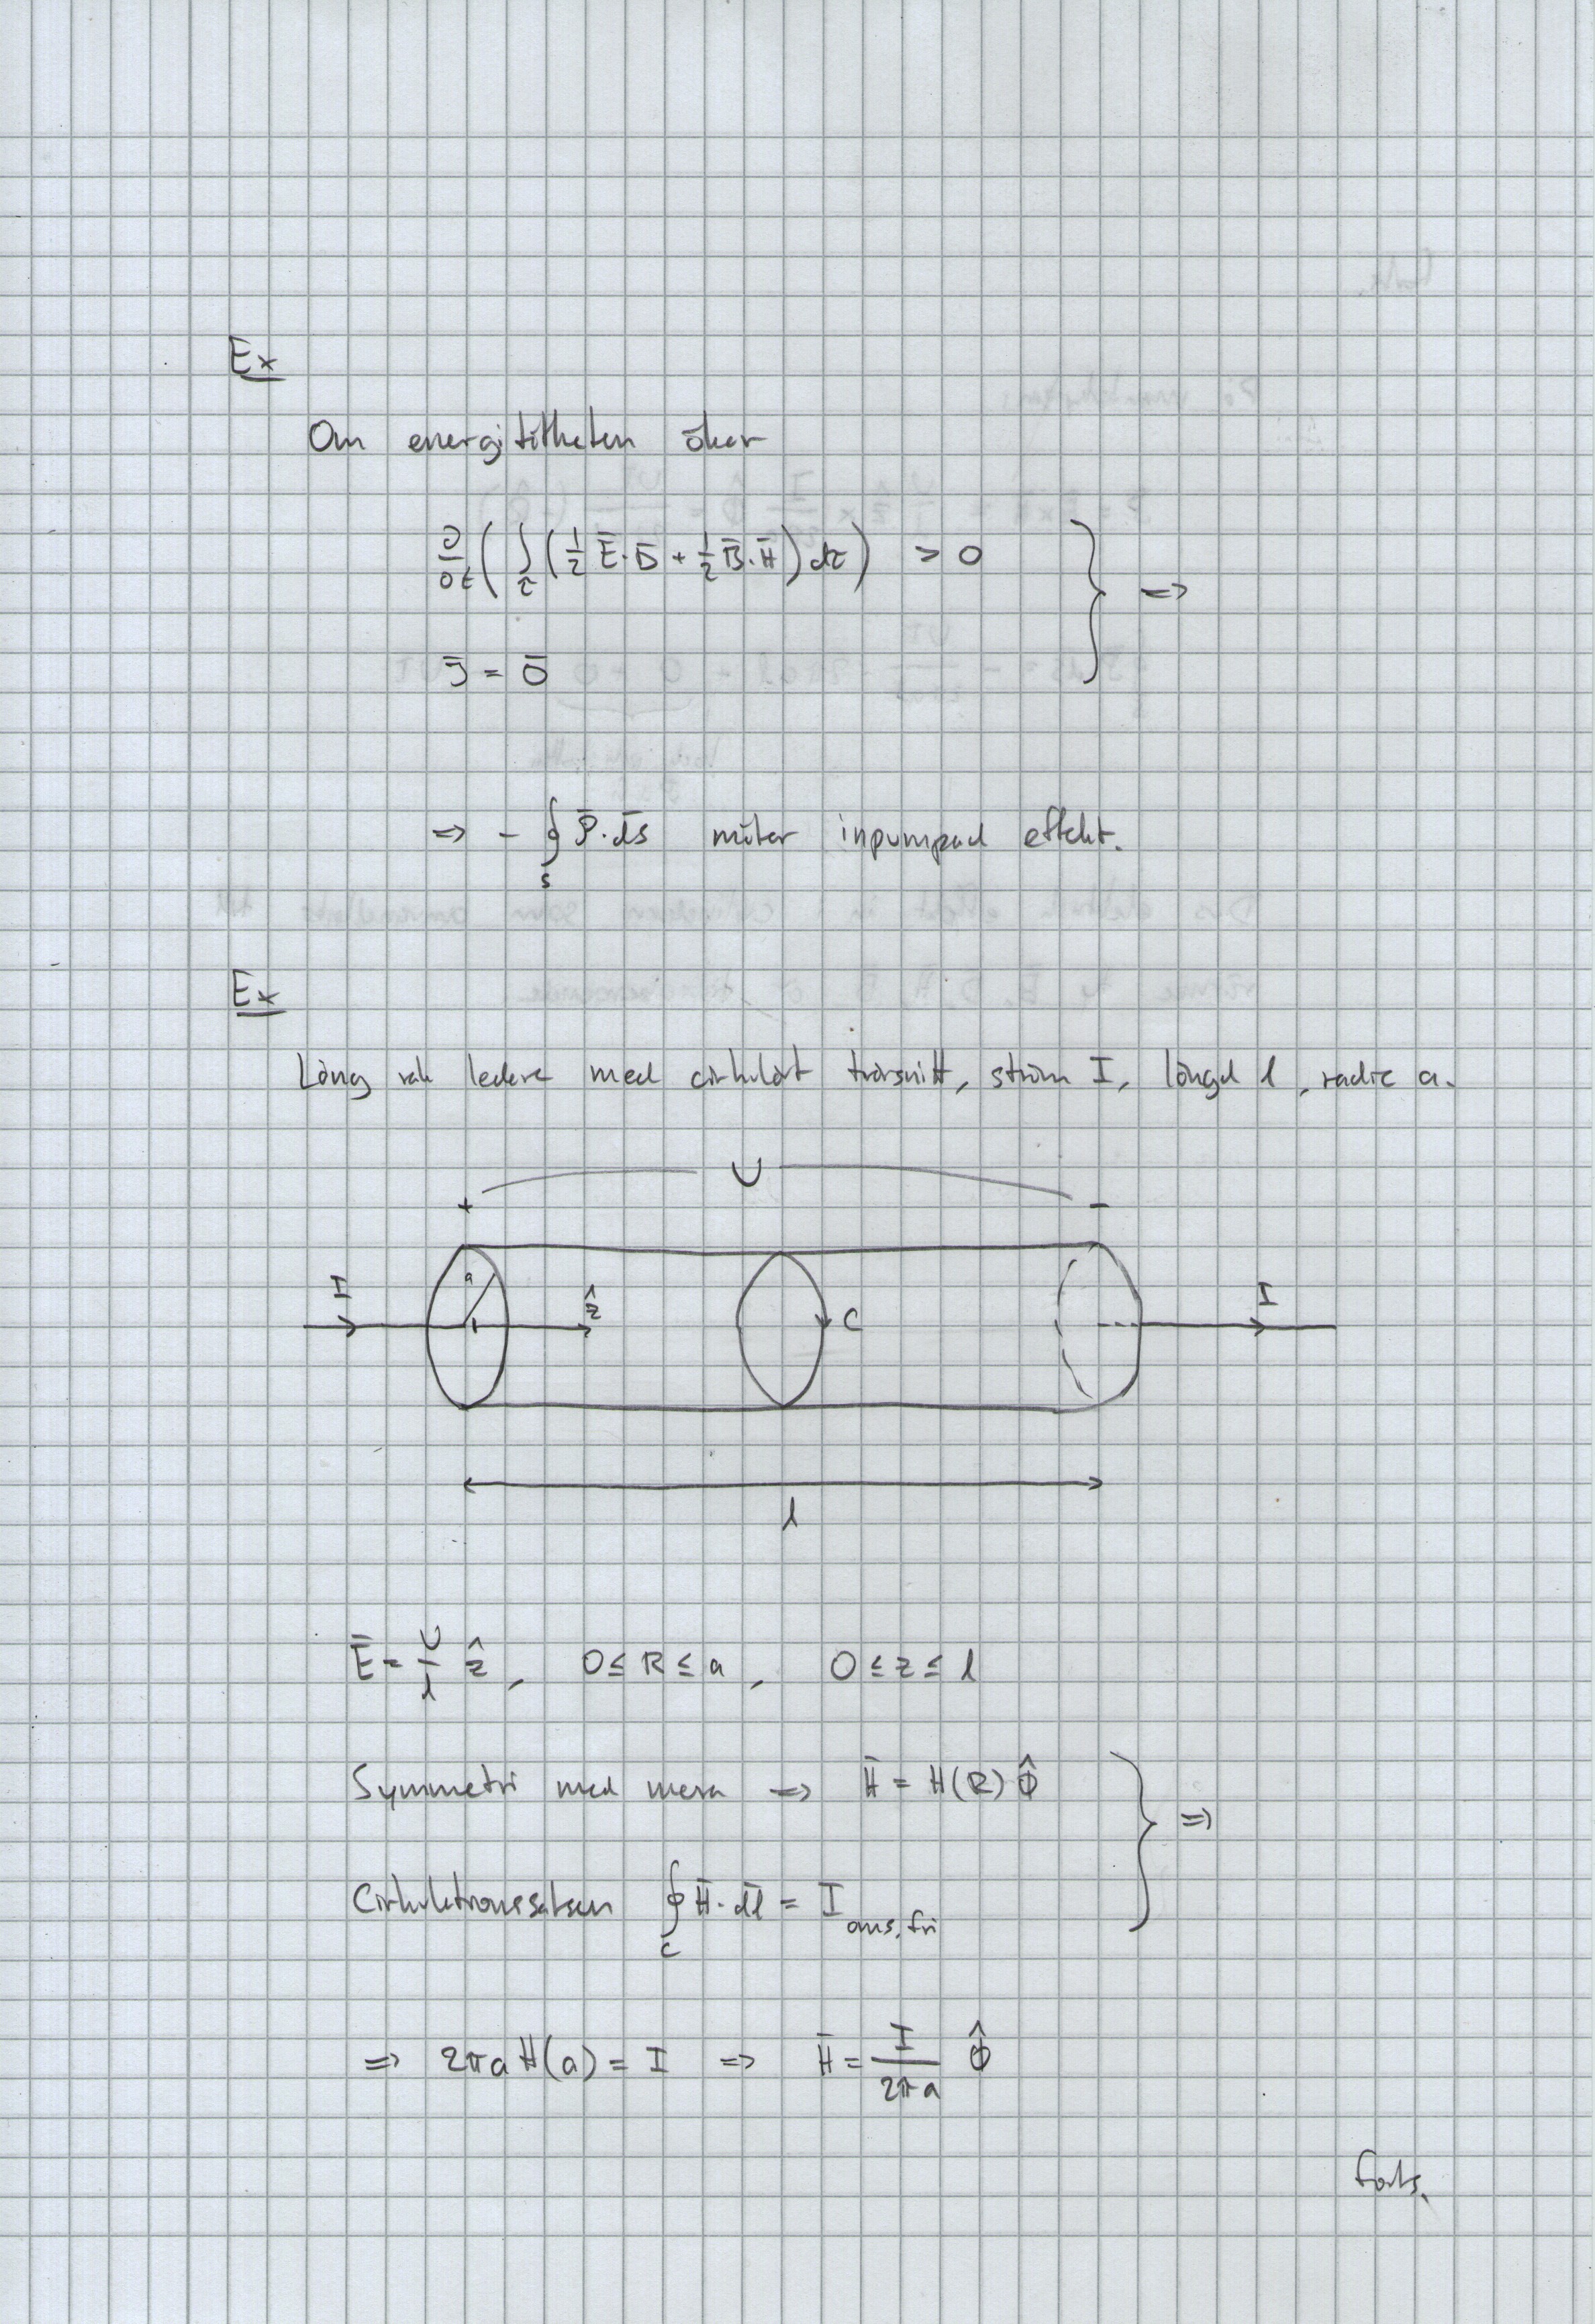 Ex
Om energitätheten ökar
∂/∂t ( ∫_τ ( 1/2 Ē·D̄ + 1/2 B̄·H̄ ) dτ ) > 0
J̄ = 0̄ } =>
=> - ∮_S P̄·d̄s mäter inpumpad effekt.
Ex
Lång rak ledare med cirkulärt tvärsnitt, ström I, längd l, radie a.
U
+ -
a
I ẑ C I
l
Ē = U/l ẑ, 0 ≤ R ≤ a, 0 ≤ z ≤ l
Symmetri med mera => H̄ = H(R) Φ̂
Cirkulationssatsen ∮_C H̄·d̄l = I oms, fri } =>
=> 2πa H(a) = I => H̄ = I/2πa Φ̂
forts.